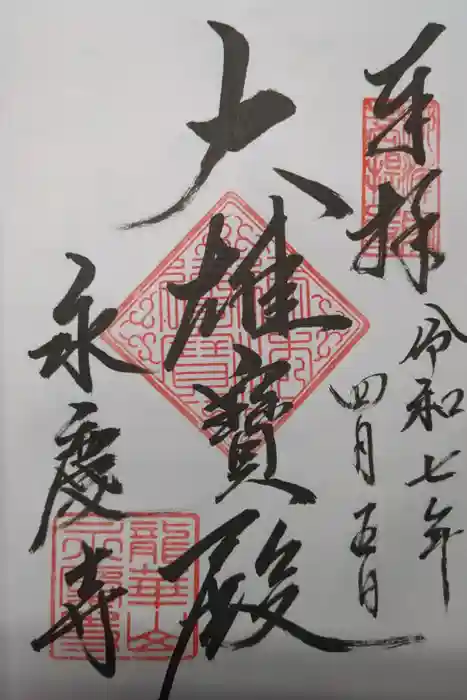 奉拝
令和七年
四月五日
大雄寶殿
永慶寺
龍華山
永慶寺